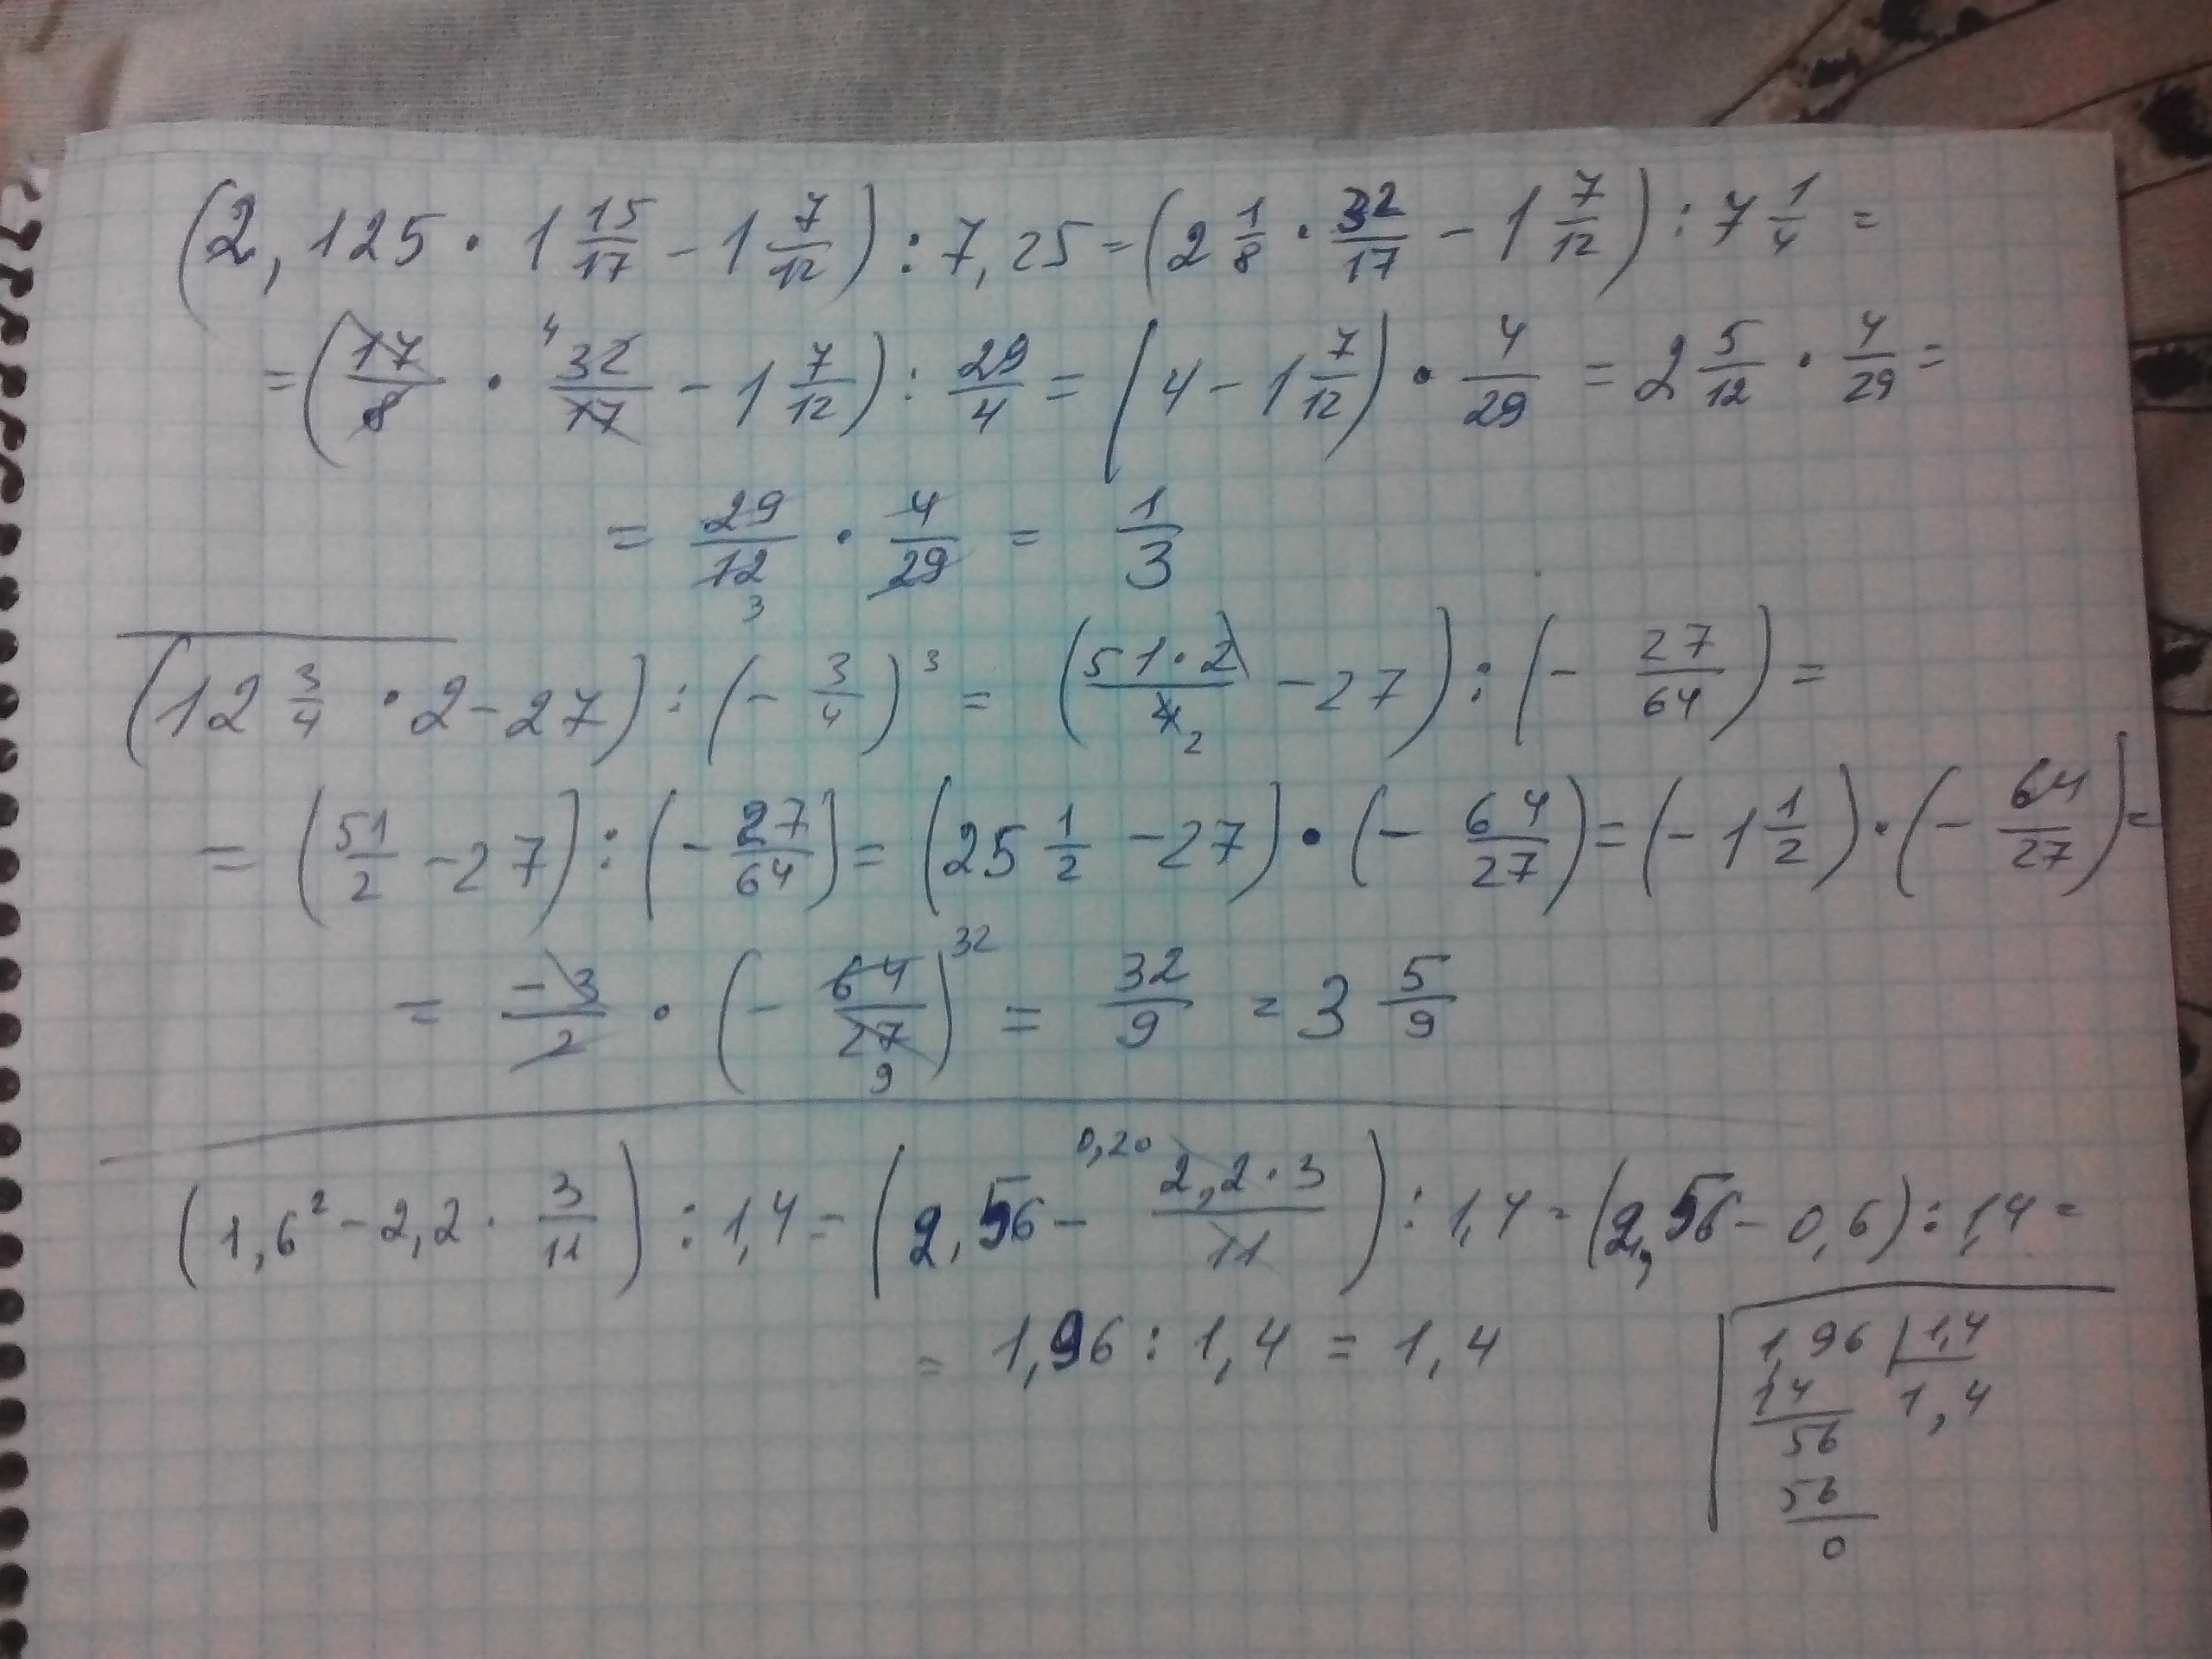 (2,125 · 1 15/17 − 1 7/12) : 7,25 = (2 1/8 · 32/17 − 1 7/12) : 7 1/4 =
= (17/8 · 32/17 4 − 1 7/12) : 29/4 = (4 − 1 7/12) · 4/29 = 2 5/12 · 4/29 =
= 29/12 3 · 4/29 = 1/3
(12 3/4 · 2 − 27) : (− 3/4)³ = (51·2/4 2 − 27) : (− 27/64) =
= (51/2 − 27) : (− 27/64) = (25 1/2 − 27) · (− 64/27) = (− 1 1/2) · (− 64/27) =
= −3/2 · (− 64/27 9) 32 = 32/9 = 3 5/9
(1,6² − 2,2 · 3/11) : 1,4 = (2,56 − 0,20 2,2·3/11) : 1,4 = (2,56 − 0,6) : 1,4 =
= 1,96 : 1,4 = 1,4
1,96 | 1,4
14 1,4
56
56
0